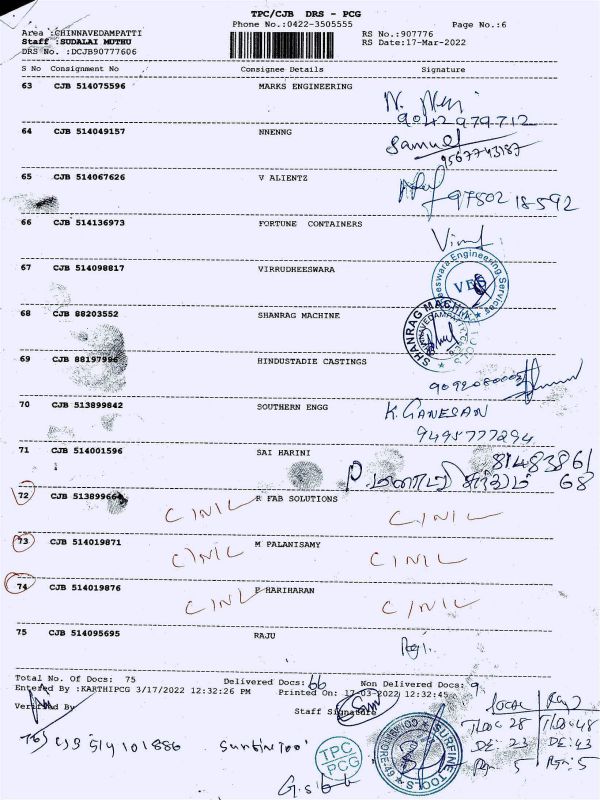 TPC/CJB DRS - PCG
Phone No.:0422-3505555
Page No.:6
Area :CHINNAVEDAMPATTI
Staff :SUDALAI MUTHU
DRS No. :DCJB90777606
RS No.:907776
RS Date:17-Mar-2022
S No Consignment No Consignee Details Signature
63 CJB 514075596 MARKS ENGINEERING
9042979712
64 CJB 514049157 NNENNG
Samuel
9567743187
65 CJB 514067626 V ALIENTZ
97502 18592
66 CJB 514136973 FORTUNE CONTAINERS
67 CJB 514098817 VIRRUDHEESWARA
Engineering Services
VES
68 CJB 88203552 SHANRAG MACHINE
SHANRAG MACHINE TOOLS
69 CJB 88197996 HINDUSTADIE CASTINGS
70 CJB 513899842 SOUTHERN ENGG
K. GANESAN
9495777294
71 CJB 514001596 SAI HARINI
81483861
68
72 CJB 51389966 R FAB SOLUTIONS
C/NIL C/NIL
73 CJB 514019871 M PALANISAMY
C/NIL C/NIL
74 CJB 514019876 P HARIHARAN
C/NIL C/NIL
75 CJB 514095695 RAJU
Raji.
Total No. Of Docs: 75 Delivered Docs: 66 Non Delivered Docs: 9
Entered By :KARTHIPCG 3/17/2022 12:32:26 PM Printed On: 17-03-2022 12:32:45
Verified By
Staff Signature
76) CJB 514101886 Surfine Tool
TPC
PCG
SURFINE TOOLS
COIMBATORE
LOCAL
28
DE: 23 DE: 43
5 5